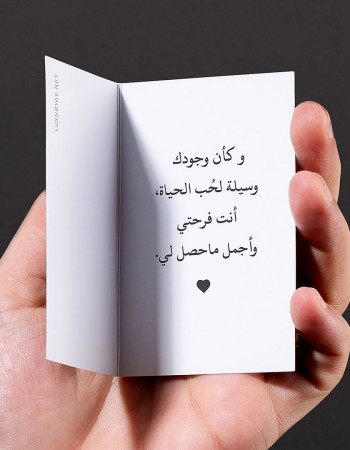 و كأن وجودك
وسيلة لحُب الحياة،
أنت فرحتي
وأجمل ماحصل لي.